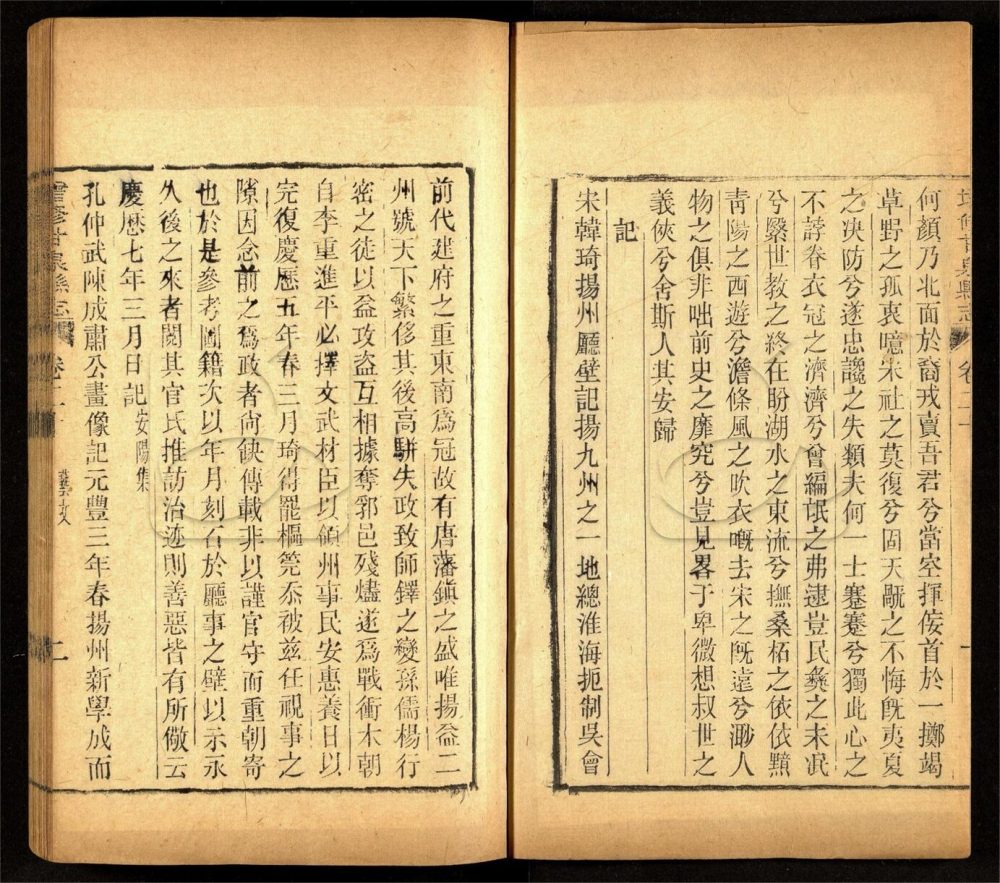 何顏乃北面於裔戎賣吾君兮當空揮侫首於一擲竭
草野之孤衷噫宋社之莫復兮固天厭之不悔旣夷夏
之决防兮遂忠讒之失類夫何一士蹇蹇兮獨此心之
不諄眷衣冠之濟濟兮曾編氓之弗逮豈民彝之未泯
兮緊世教之終在盼湖水之東流兮撫桑柘之依依黯
靑陽之西遊兮澹條風之吹衣嘅去宋之旣遠兮渺人
物之俱非咄前史之靡究兮豈見畧于卑微想叔世之
義俠兮舍斯人其安歸
記
宋韓琦揚州廳壁記揚九州之一地總淮海扼制吳會
前代建府之重東南爲冠故有唐藩鎭之盛唯揚益二
州號天下繁侈其後高駢失政致師鐸之變孫儒楊行
密之徒以益攻盜互相據奪郛邑殘燼遂爲戰衝本朝
自李重進平必擇文武材臣以領州事民安惠養日以
完復慶歴五年春三月琦得罷樞筦忝被兹任視事之
隙因念前之爲政者尙缺傳載非以謹官守而重朝寄
也於是參考圖籍次以年月刻石於廳事之壁以示永
久後之來者閱其官氏推訪治迹則善惡皆有所儆云
慶歴七年三月日記 安陽集
孔仲武陳成肅公畫像記元豐三年春揚州新學成而
甘泉縣志 卷二十 藝文 二